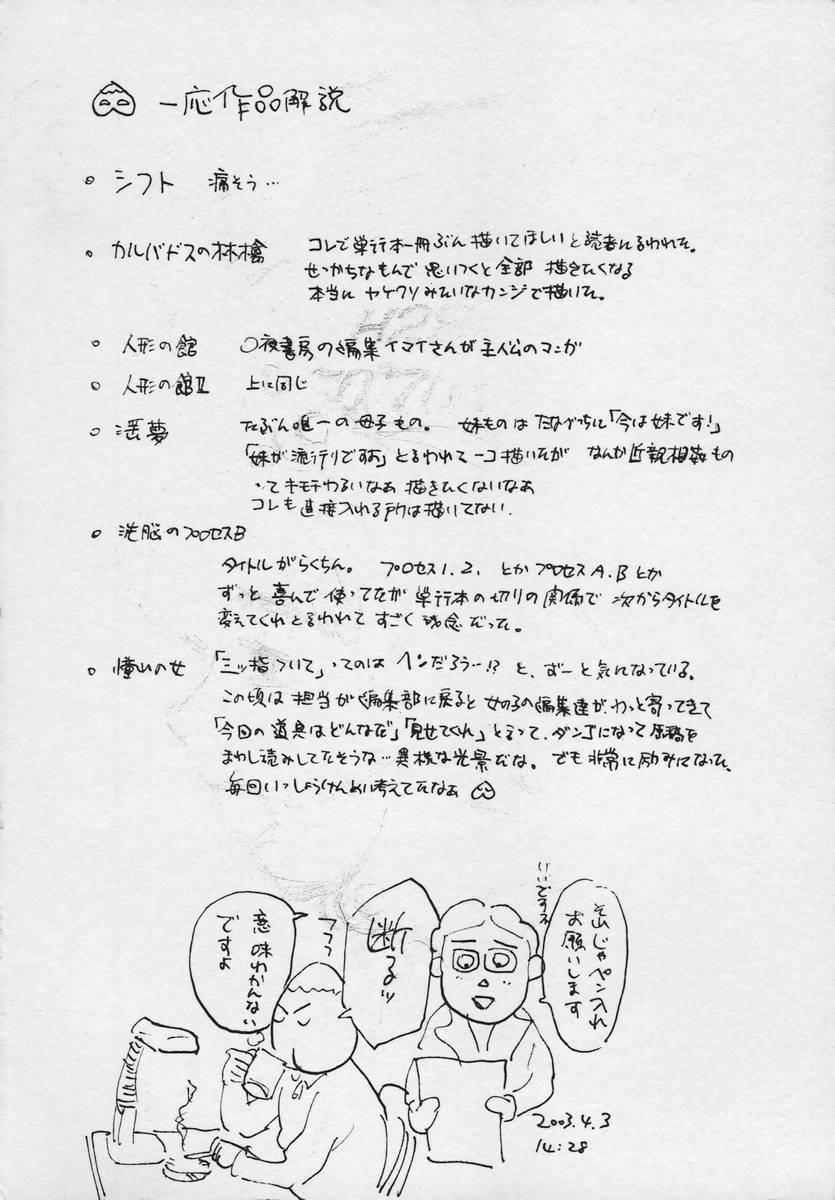 一応作品解説
シフト 痛そう…
カルバドスの林檎 コレで単行本一冊ぶん描いてほしいと読者にゆわれた。
せっかちなもんで思いつくと全部描きたくなる
本当にヤケクソみたいなカンジで描いた。
人形の館 ○夜書房の編集イマイさんが主人公のマンガ
人形の館Ⅱ 上に同じ
淫夢 たぶん唯一の母子もの。 妹ものはたながっちに「今は妹です!」
「妹が流行りですよ」とゆわれて一コ描いたが なんか近親相姦もの
ってキモチわるいなぁ 描きたくないなぁ
コレも直接入れる所は描いてない.
洗脳のプロセスB
タイトルがらくちん。 プロセス1.2. とかプロセスA.Bとか
ずっと喜んで使ってたが単行本の切りの関係で次からタイトルを
変えてくれとゆわれてすごく残念だった。
憧れの女 「三ッ指ついて」ってのはヘンだろうー!?と、ずーと気になっている。
この頃は担当が編集部に戻ると女の子の編集達がわっと寄ってきて
「今回の道具はどんなだ」「見せてくれ」と言って、ダンゴになって原稿を
まわし読みしてたそうな…異様な光景だな。でも非常に励みになった。
毎回いっしょうけんめい考えてたなぁ
じゃペン入れ
お願いします
いいですね
断るッ
フフフ
意味わかんない
ですよ
2003.4.3
14:28